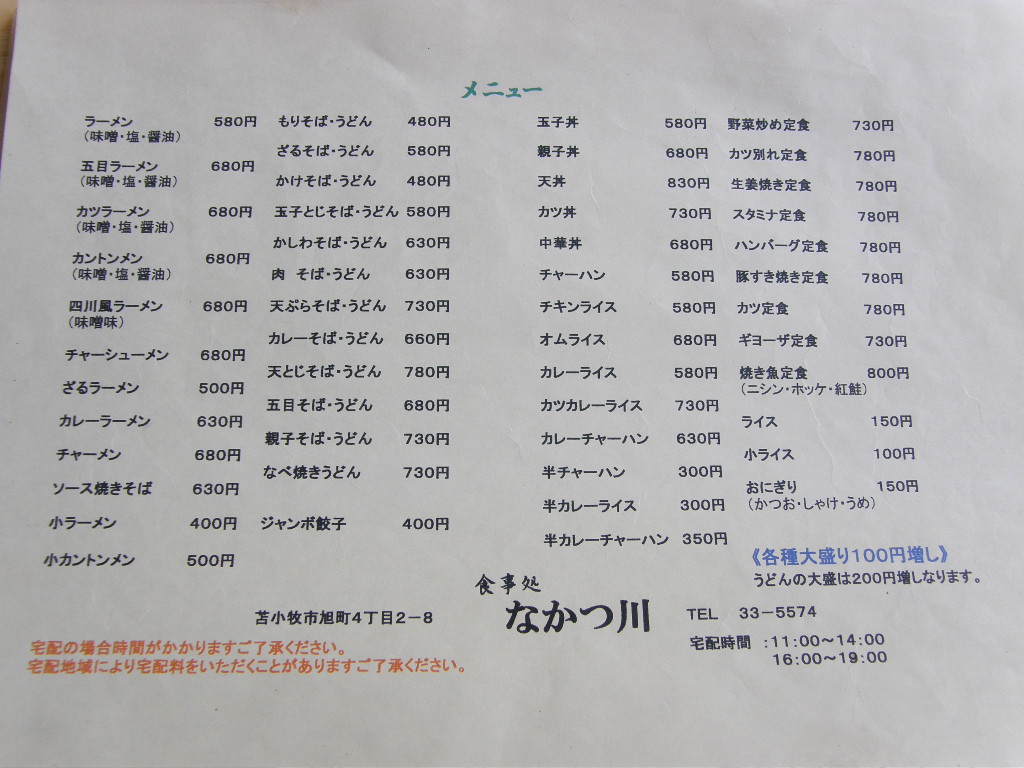 メニュー
ラーメン 580円
（味噌・塩・醤油）
五目ラーメン 680円
（味噌・塩・醤油）
カツラーメン 680円
（味噌・塩・醤油）
カントンメン 680円
（味噌・塩・醤油）
四川風ラーメン 680円
（味噌味）
チャーシューメン 680円
ざるラーメン 500円
カレーラーメン 630円
チャーメン 680円
ソース焼きそば 630円
小ラーメン 400円
小カントンメン 500円
もりそば・うどん 480円
ざるそば・うどん 580円
かけそば・うどん 480円
玉子とじそば・うどん 580円
かしわそば・うどん 630円
肉 そば・うどん 630円
天ぷらそば・うどん 730円
カレーそば・うどん 660円
天とじそば・うどん 780円
五目そば・うどん 680円
親子そば・うどん 730円
なべ焼きうどん 730円
ジャンボ餃子 400円
玉子丼 580円
親子丼 680円
天丼 830円
カツ丼 730円
中華丼 680円
チャーハン 580円
チキンライス 580円
オムライス 680円
カレーライス 580円
カツカレーライス 730円
カレーチャーハン 630円
半チャーハン 300円
半カレーライス 300円
半カレーチャーハン 350円
野菜炒め定食 730円
カツ別れ定食 780円
生姜焼き定食 780円
スタミナ定食 780円
ハンバーグ定食 780円
豚すき焼き定食 780円
カツ定食 780円
ギョーザ定食 730円
焼き魚定食 800円
（ニシン・ホッケ・紅鮭）
ライス 150円
小ライス 100円
おにぎり 150円
（かつお・しゃけ・うめ）
《各種大盛り100円増し》
うどんの大盛は200円増しなります。
食事処
なかつ川
苫小牧市旭町4丁目2－8
TEL 33－5574
宅配時間 ：11:00～14:00
16:00～19:00
宅配の場合時間がかかりますご了承ください。
宅配地域により宅配料をいただくことがありますご了承ください。